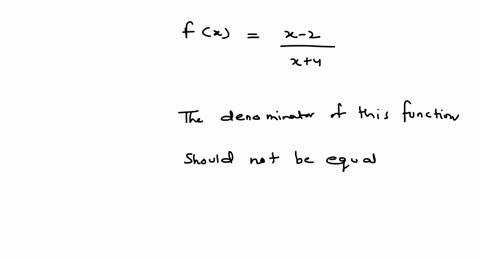 f(x) = x-2 / x+4
The denominator of this function
should not be equal